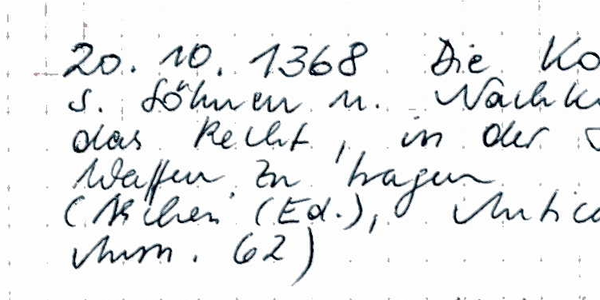 20. 10. 1368 Die Ko
s. Söhnen u. Nachk
das Recht, in der S
Waffen zu tragen
( (Ed.),
Num. 62)